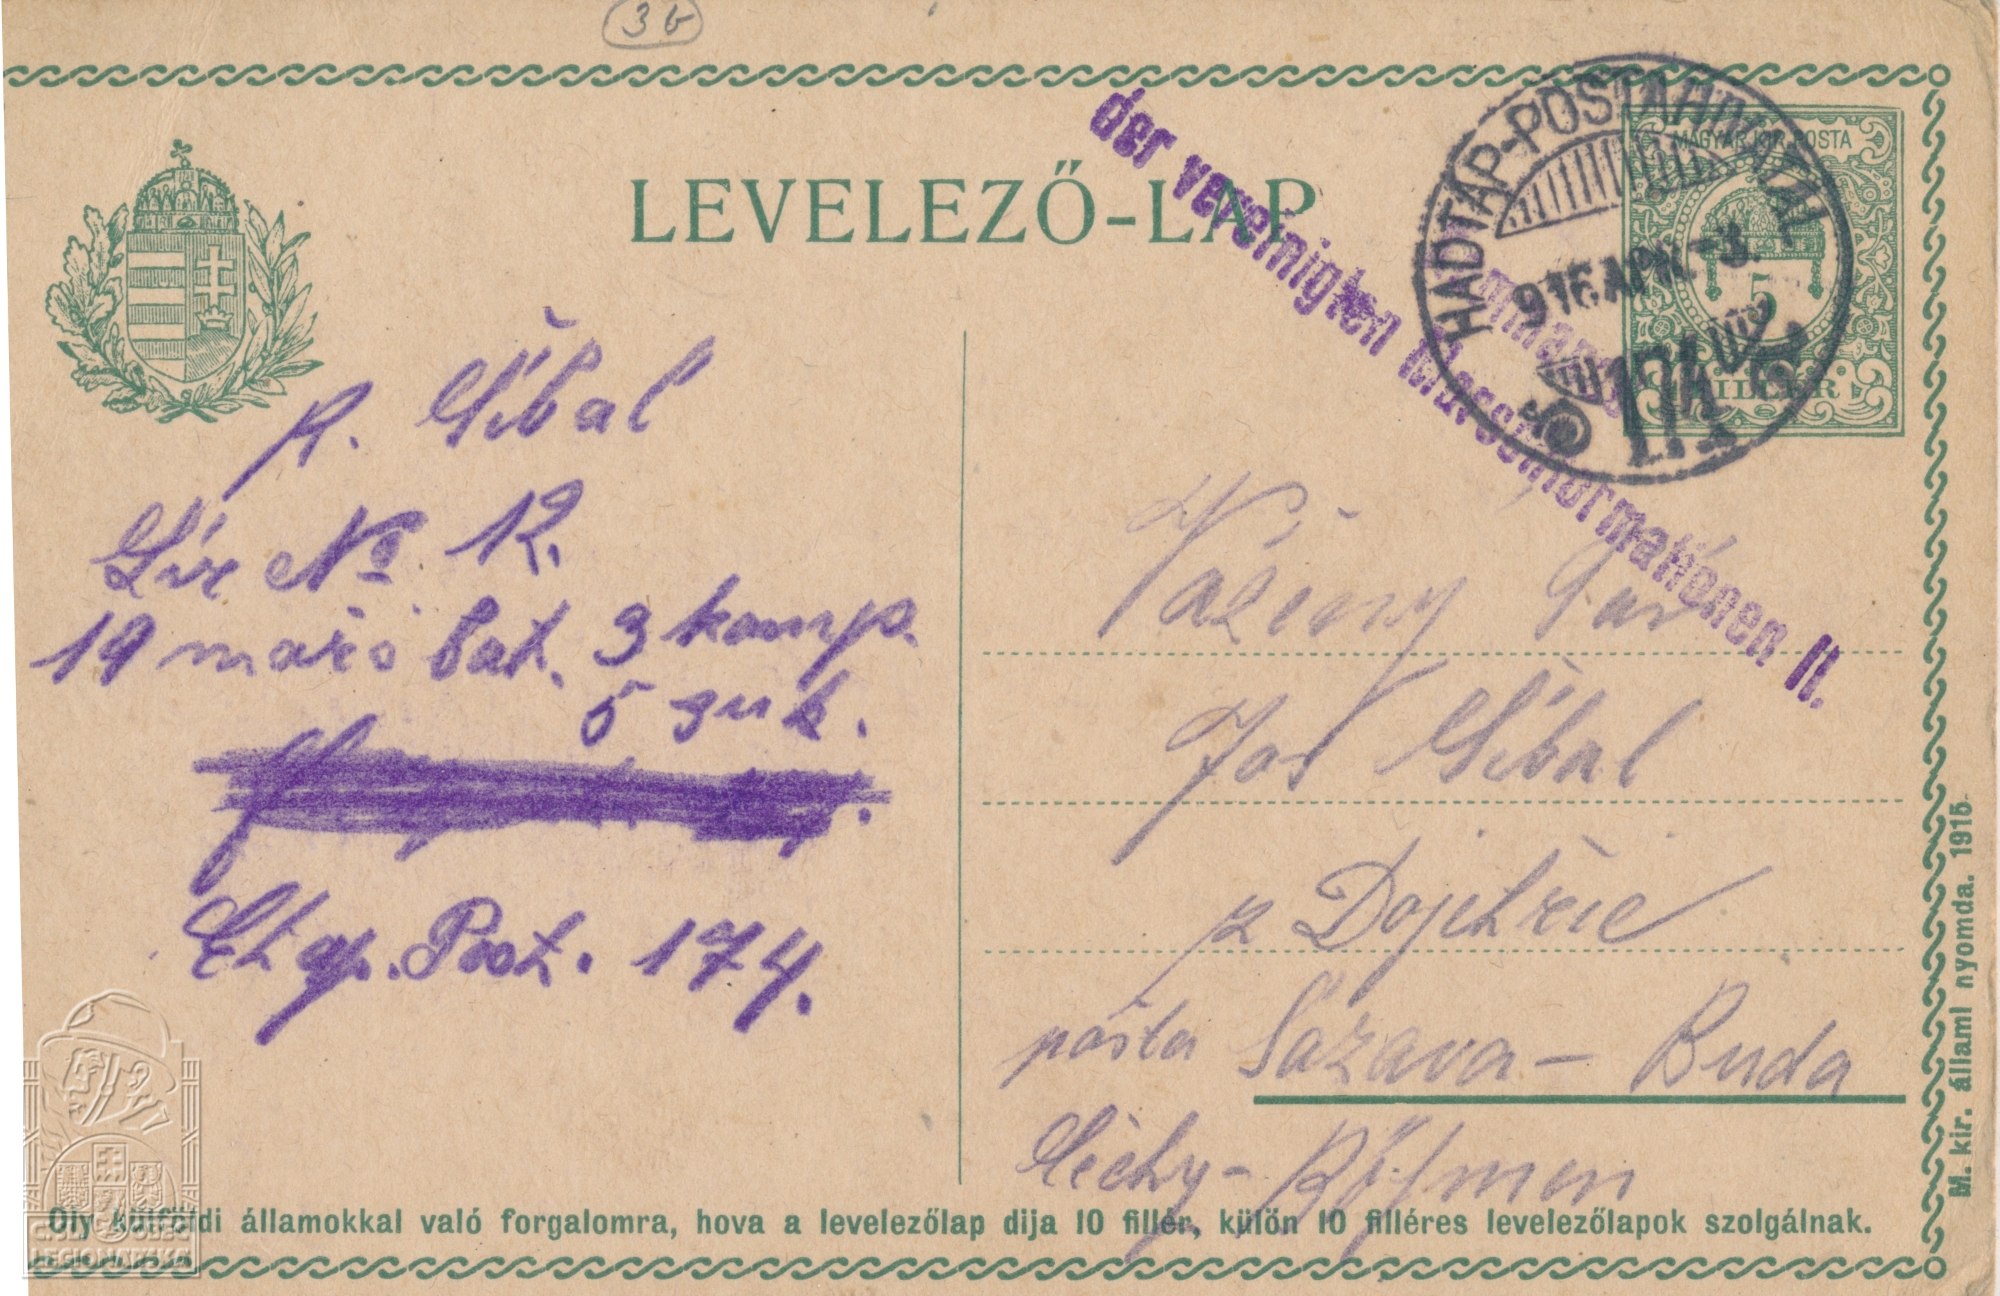 3 b
LEVELEZŐ-LAP
MAGYAR KIR. POSTA
5
FILLÉR
HADTÁP-POSTAHIVATAL
916 APR. -3.
174
der vereinigten Marschformationen II.
R. Síbal
Lir No 12.
19 marš bat. 3 komp.
5 zuk.
Etap. Post. 174.
Vážený Pan
Jos Síbal
p Dojetřic
pošta Sázava - Buda
Čechy - Böhmen
Oly külföldi államokkal való forgalomra, hova a levelezőlap dija 10 fillér, külön 10 filléres levelezőlapok szolgálnak.
M. kir. állami nyomda. 1915.
ČSOL OBEC
LEGIONÁŘSKÁ